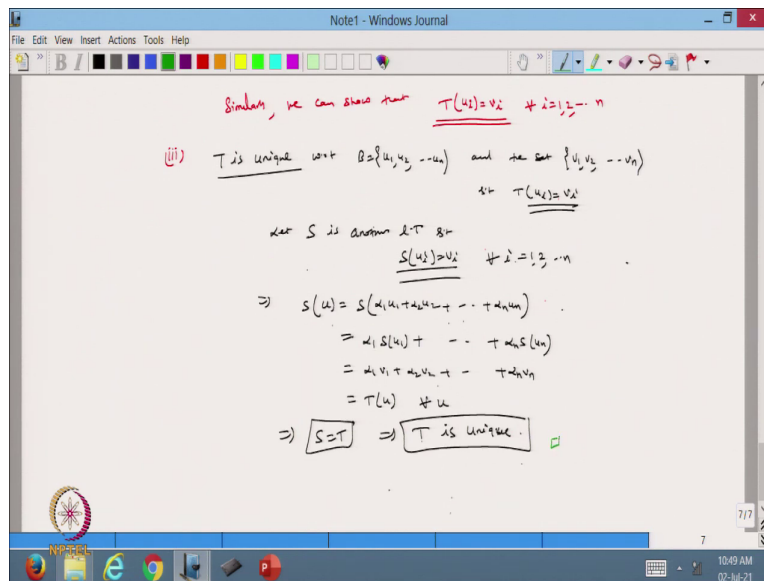 Note1 - Windows Journal
File Edit View Insert Actions Tools Help
Similarly, we can show that T(ui)=vi ∀ i=1,2,--- n
(iii) T is unique wrt B={u1,u2, --un} and the set {v1,v2, --vn}
st T(ui)=vi
Let S is another L.T st
S(ui)=vi ∀ i=1,2, --n
=> S(u) = S(α1u1+α2u2+ -- +αnun)
= α1S(u1)+ -- +αnS(un)
= α1v1+α2v2+ - +αnvn
= T(u) ∀ u
=> S=T => T is unique.
7/7
7
NPTEL
10:49 AM
02-Jul-21